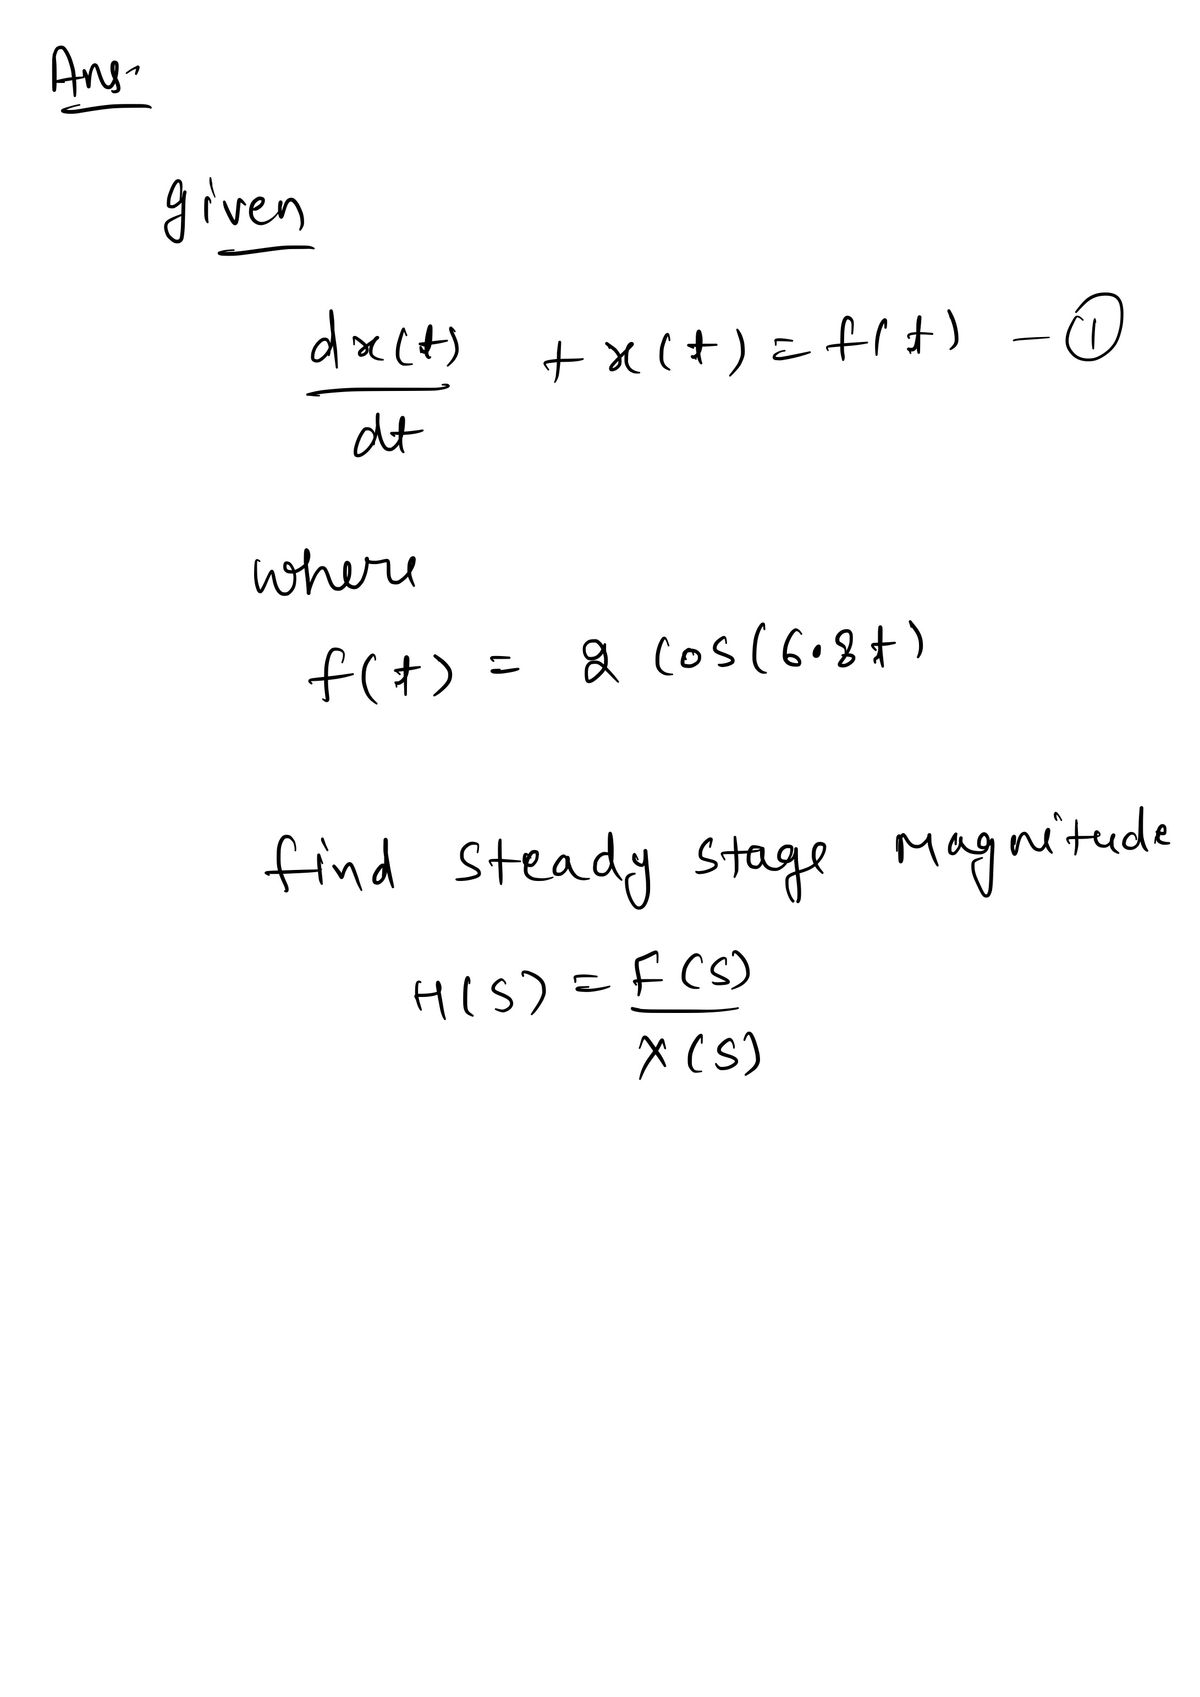 Ans.
given
dx(t)/dt + x(t) = f(t) - ①
where
f(t) = 2 cos(6.8t)
find steady stage magnitude
H(s) = F(s)/X(s)